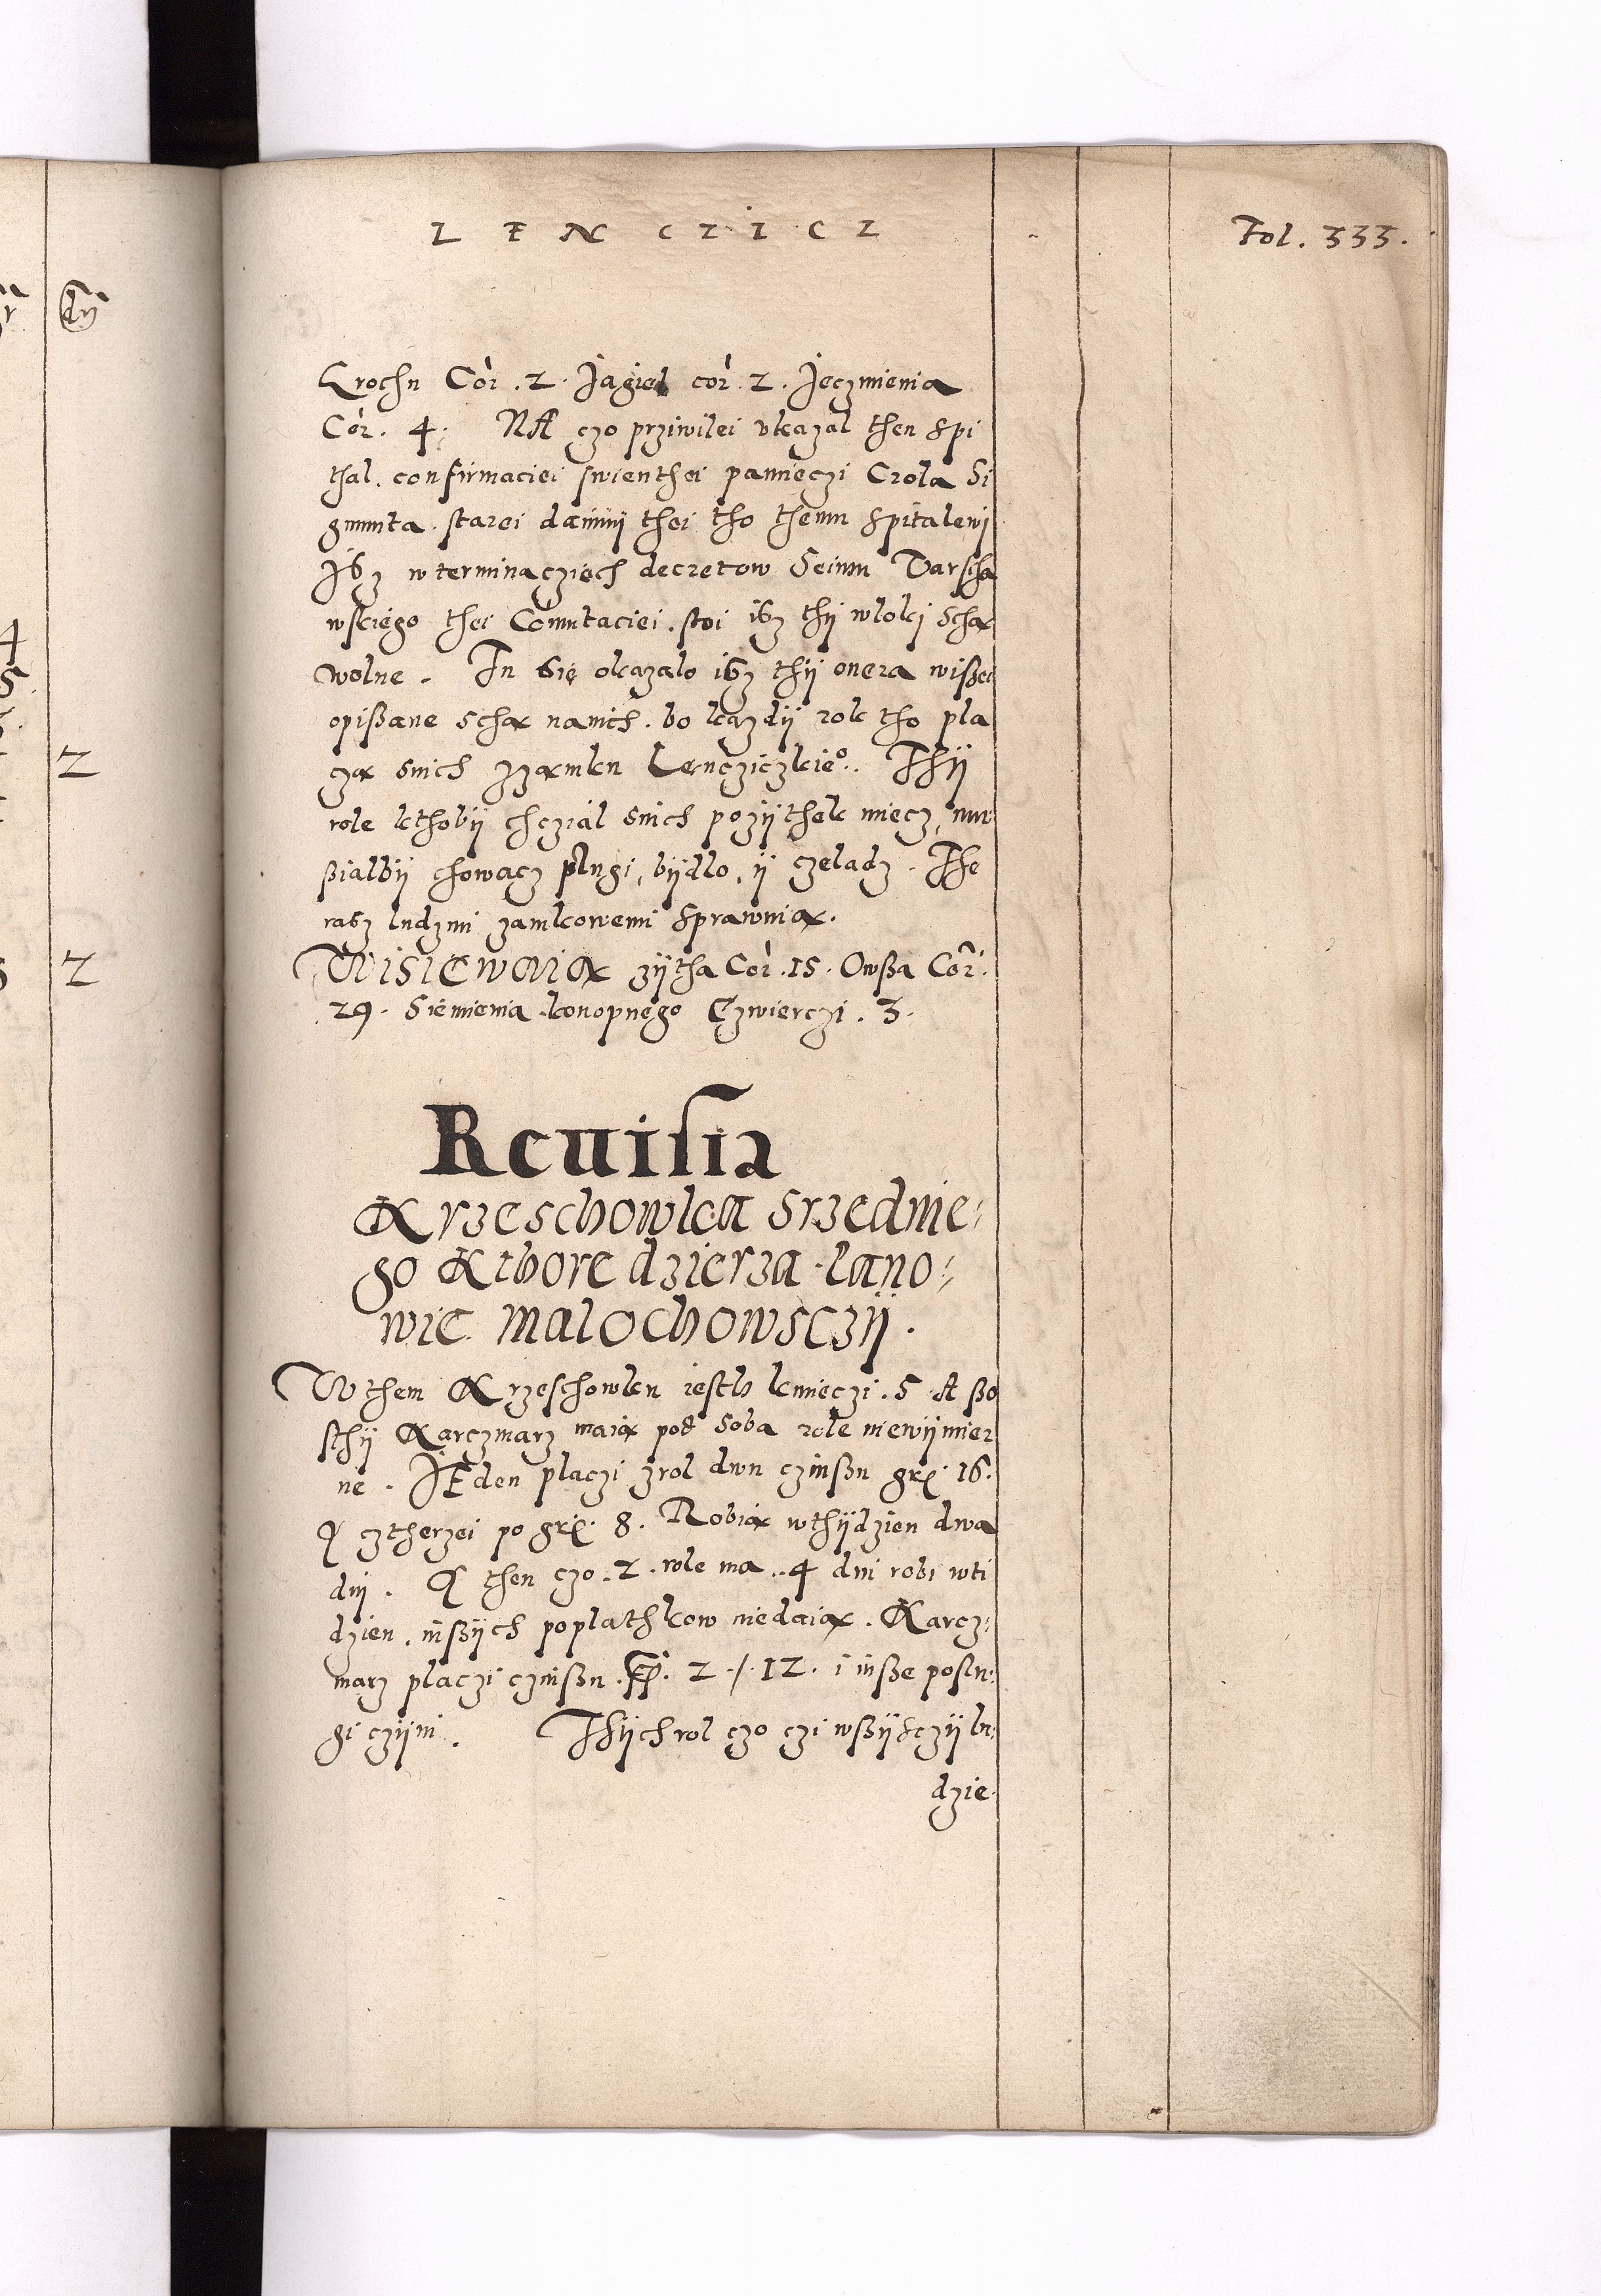 LENCZICZ
Fol. 333.
Grochu Cor. 2. Jagiel cor. 2. Jeczmienia
Cor. 4. NA czo prziwilei vkazal then spi
thal. confirmaciei swienthei pamieczi Crola Si
gmunta starei dawnij thei tho themu spitalewj
Jsz w terminacziech decretow Seimu Varscha
wskiego thei Comutaciei. stoi isz thij wlokj schą
wolne. Tu się okazalo isz thij onera wißei
opißane schą nanich. bo kazdij rok tho pla
czą snich zzamku Lencziczkie°. Thij
role kthobij chczial snich pozijthek miecz, mu
ßialbij chowacz plugi, bijdlo, ij czeladz. The
rasz ludzmi zamkowemi sprawuią.
WiSiEwaią zijtha Cor. 15. Owßa Cor.
29. Siemienia konopnego Czwierczi. 3.
Reuisia
Krzeschowka Srzednie-
go Kthore dzierza Iano-
wie Malochowsczij.
W them Krzeschowku iesth kmieczi. 5 A ßo
sthij Karczmarz maią pod soba role niewijmier
ne. JEden placzi zrol dwu czinßu grꝭ. 16.
A cztherzei po grꝭ. 8. Robią wthijdzien dwa
dni. A then czo. 2. role ma.. 4 dni robi wti
dzien. inßijch poplathkow niedaią. Karcz-
marz placzi czinßu. 2 ./. 12. i inße poslu-
gi czijni. Thijch rol czo czi wßijsczij lu-
dzie
z
z
4